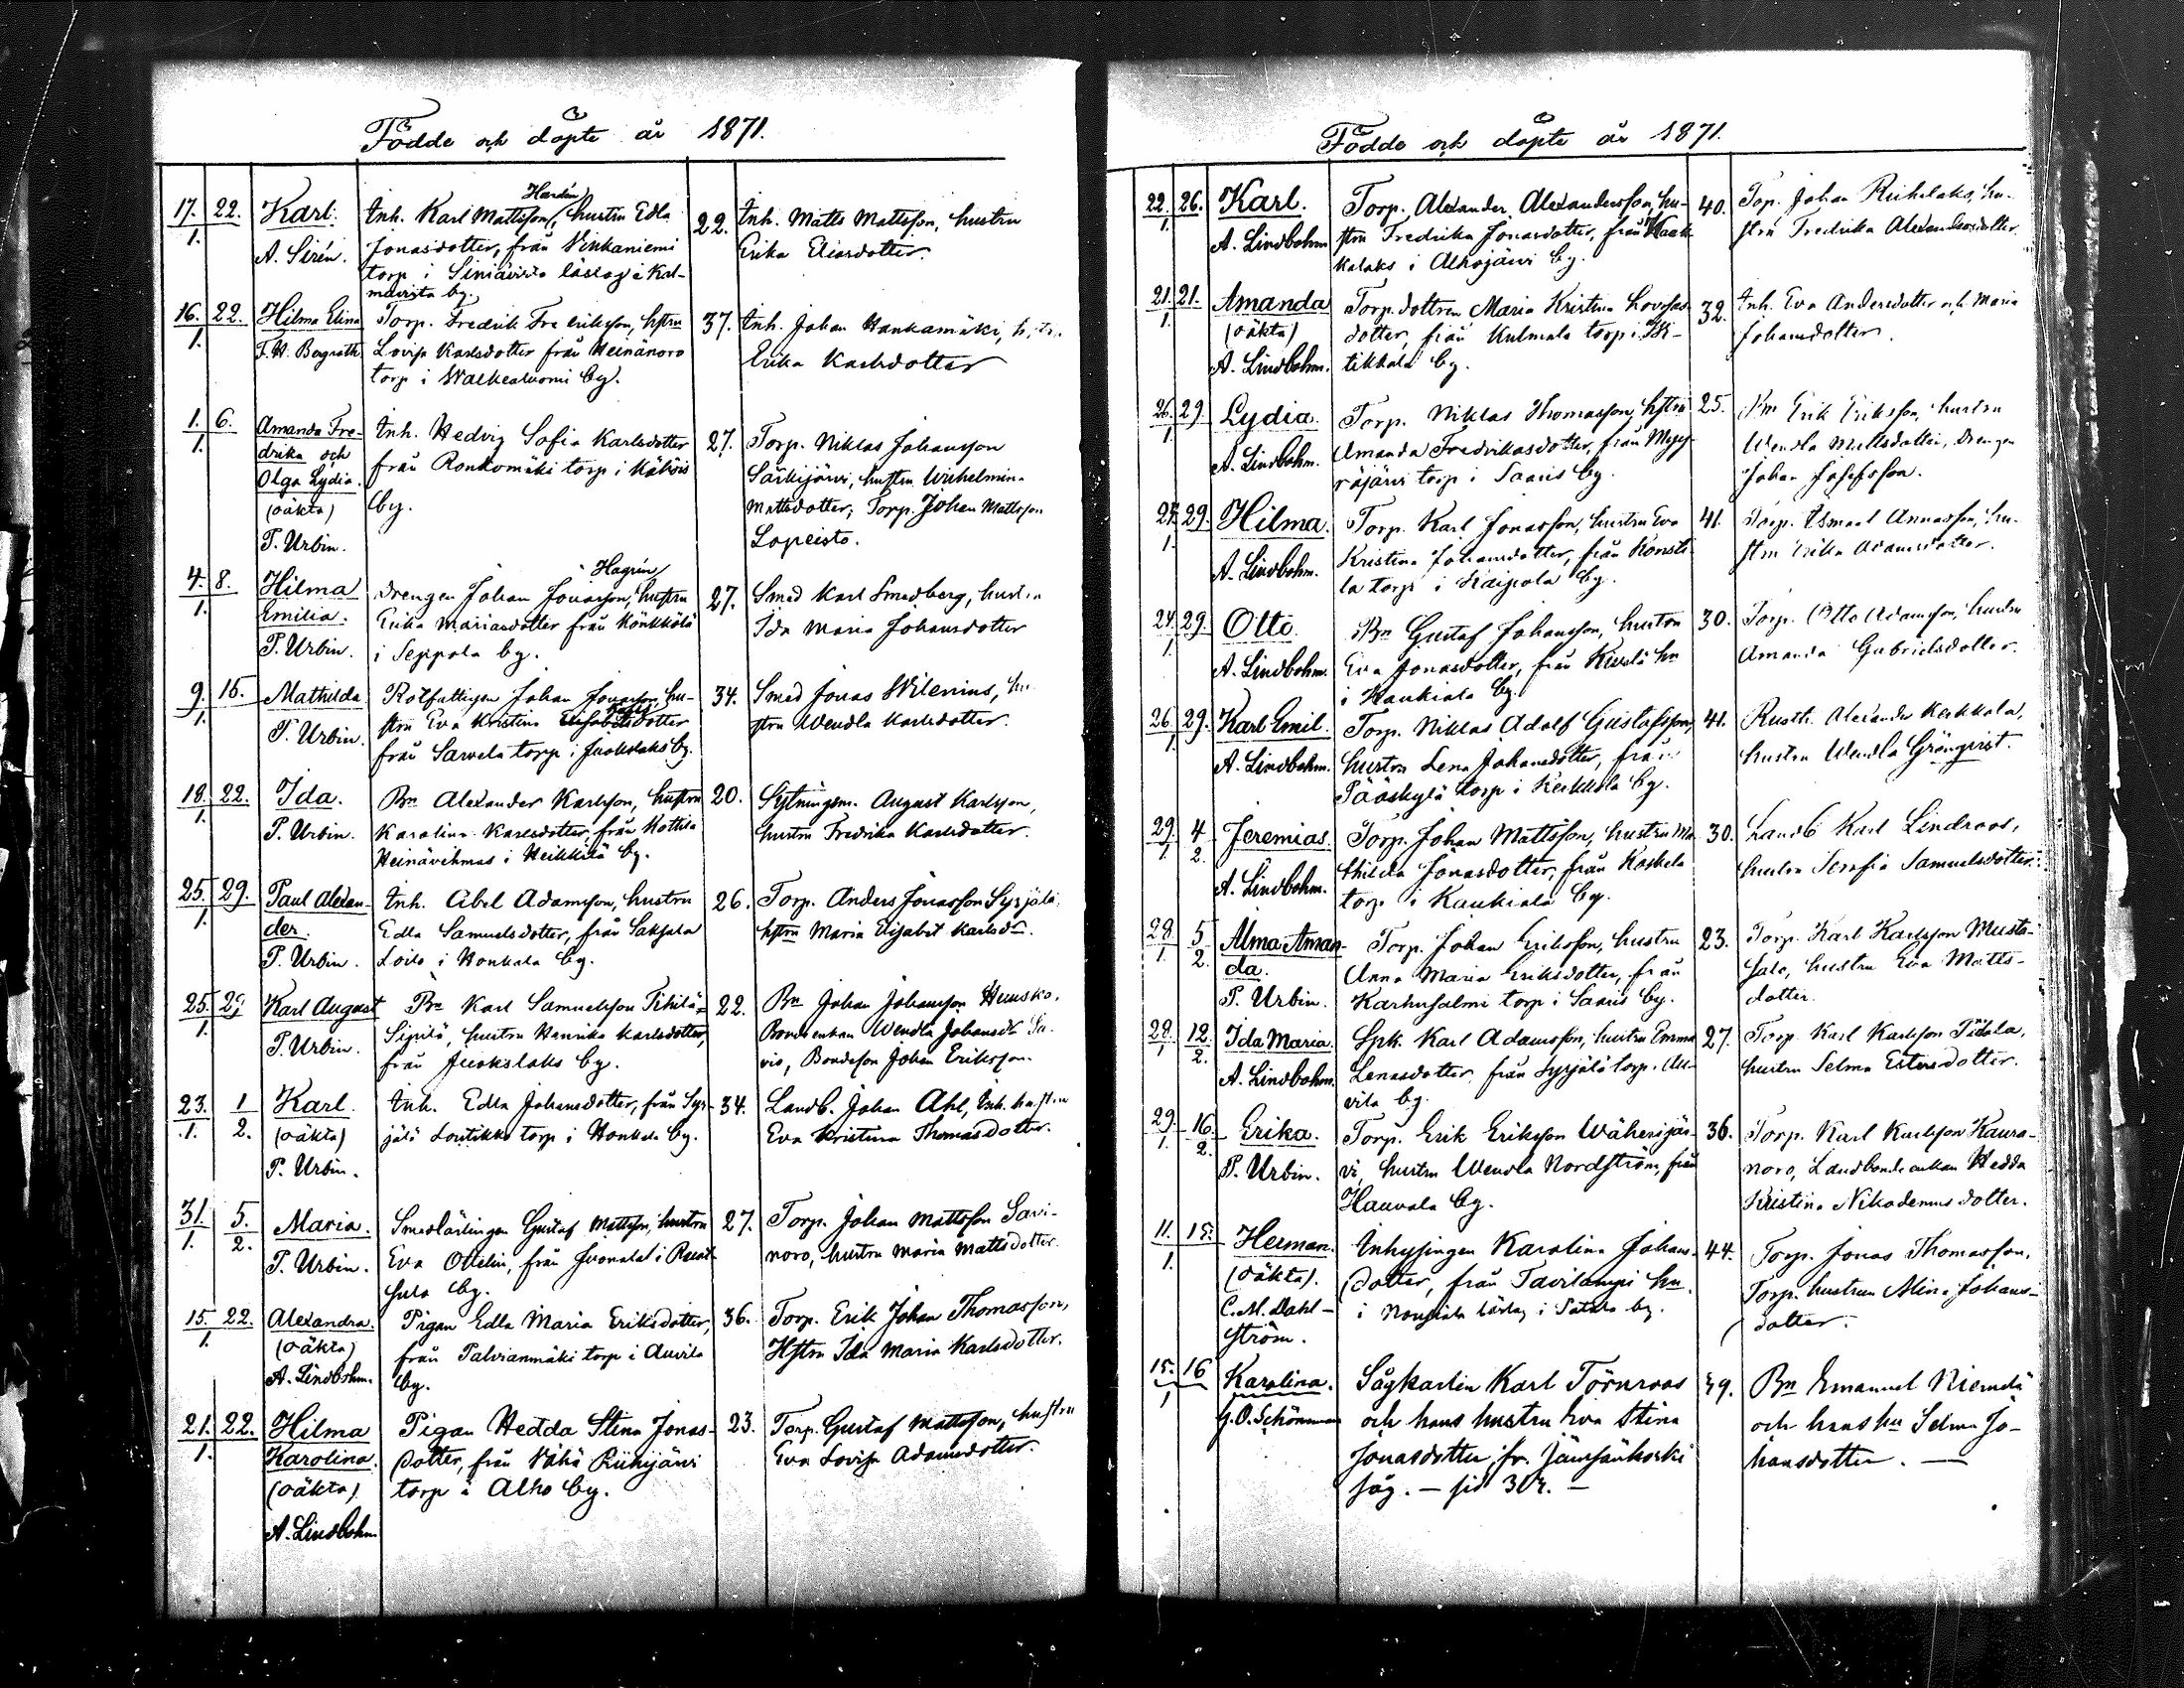 Födde och döpte år 1871.
17. 22. Karl. Inh. Karl Mattsson (Hardén), hustru Edla 22. Inh. Matts Mattsson, hustru
1. A. Sirén. Jonasdotter, från Vinkaniemi Erika Eliasdotter.
torp i Siniävirta låslag i Kal-
mavirta by.
16. 22. Hilma Elina Torp. Fredrik Fredriksson, hstru 37. Inh. Johan Hankamäki,
1. F. W. Bergroth Lovisa Karlsdotter från Heinänoro Erika Karlsdotter
torp i Walkealuomi by.
1. 6. Amanda Fre- Inh. Hedvig Sofia Karlsdotter 27. Torp. Niklas Johansson
1. drika och från Ronkomäki torp i Särkijärvi, hustru Wilhelmina
Olga Lydia. by. Mattsdotter, Torp. Johan Mattsson
(oäkta) Lopeisto.
P. Urbin.
4. 8. Hilma Drengen Johan Jonasson, (Hagrin) hustru 27. Smed Karl Smedberg, hustru
1. Emilia. Erika Mariasdotter från Könkkölä Ida Maria Johansdotter
P. Urbin. i Seppola by.
9. 15. Mathilda Rotfattigen Johan Jonasson, hu- 34. Smed Jonas Wilenius, hu-
1. P. Urbin. stru Eva Kristina Elisabetsdotter stru Wendla Karlsdotter.
från Sarvela torp i Juokslaks by.
18. 22. Ida. Bn Alexander Karlsson, hustru 20. Sytningsm. August Karlsson,
1. P. Urbin. Karolina Karlsdotter, från Mattila hustru Fredrika Karlsdotter.
Heinävihmas i Heikkilä by.
25. 29. Paul Alexan- Inh. Abel Adamsson, hustru 26. Torp. Anders Jonasson Syrjälä,
1. der. Edla Samuelsdotter, från Saksala hstru Maria Elisabet Karlsdr.
P. Urbin. Loilo i Honkala by.
25. 29 Karl August Bn Karl Samuelsson Tihilä- 22. Bn Johan Johansson
1. P. Urbin. Sipilä, hustru Henrika Karlsdotter, Bondeenkan Wendla Johansdr Sa-
från Juokslaks by. vio, Bondeson Johan Eriksson.
23. 1 Karl. Inh. Edla Johansdotter, från Syr- 34. Landb. Johan Ahl, Inh. hustru
1. 2. (oäkta) jälä Loutikko torp i Honkala by. Eva Kristina Thomasdotter.
P. Urbin.
31. 5. Maria. Smedlärlingen Gustaf Mattsson, hustru 27. Torp. Johan Mattsson Savi-
1. 2. P. Urbin. Eva Ottelin, från i Ruot- noro, hustru Maria Mattsdotter.
sula by.
15. 22. Alexandra. Pigan Edla Maria Eriksdotter, 36. Torp. Erik Johan Thomasson,
1. (oäkta) från Palvianmäki torp i Auvila Hstru Ida Maria Karlsdotter.
A. Lindbohm. by.
21. 22. Hilma Pigan Hedda Stina Jonas- 23. Torp. Gustaf Mattsson, hustru
1. Karolina. dotter, från Vähä Riihijärvi Eva Lovisa Adamsdotter.
(oäkta) torp i Alho by.
A. Lindbohm
Födde och döpte år 1871.
22. 26. Karl. Torp. Alexander Alexandersson, hu- 40. Torp. Johan Riihilaks, hu-
1. A. Lindbohm stru Fredrika Jonasdotter, från Haak- stru Fredrika Alexandersdotter.
kalaks i Alhojärvi by.
21. 21. Amanda Torp.dottren Maria Kristina Lovisas- 32. Inh. Eva Andersdotter och Maria
1. (oäkta) dotter, från Kulmala torp i Johansdotter.
A. Lindbohm. tikkala by.
26. 29. Lydia. Torp. Niklas Thomasson, hstru 25. Erik Eriksson, hustru
1. A. Lindbohm. Amanda Fredrikasdotter, från Wendla Mattsdotter, Drengen
räjärvi torp i Saaris by. Johan Josefsson.
27. 29. Hilma. Torp. Karl Jonasson, hustru Eva 41. Torp. Ismael Annasson, hu-
1. A. Lindbohm. Kristina Johansdotter, från Konsti- stru Erika Adamsdotter.
la torp i Kaipola by.
24. 29. Otto. Bn Gustaf Johansson, hustru 30. Torp. Otto Adamsson, hustru
1. A. Lindbohm. Eva Jonasdotter, från Kivelä hn Amanda Gabrielsdotter.
i Kaukiala by.
26. 29. Karl Emil. Torp. Niklas Adolf Gustafsson, 41. Rusth. Alexander Kerkkola,
1. A. Lindbohm. hustru Lena Johansdotter, från hustru Wendla Grönqvist.
Pääskylä torp i Kerkkola by.
29. 4 Jeremias. Torp. Johan Mattsson, hustru Ma- 30. Landb Karl Lindroos,
1. 2. A. Lindbohm. thilda Jonasdotter, från Koskela hustru Serafia Samuelsdotter.
torp i Kaukiala by.
28. 5 Alma Aman- Torp. Johan Eriksson, hustru 23. Torp. Karl Karlsson Musta-
1. 2. da. Anna Maria Eriksdotter, från salo, hustru Eva Matts-
P. Urbin. Karhusalmi torp i Saaris by. dotter.
28. 12. Ida Maria. Spk. Karl Adamsson, hustru Emma 27. Torp. Karl Karlsson
1 2. A. Lindbohm. Lenasdotter från Syrjälä torp. Au- hustru Selma Estersdotter.
vila by.
29. 16. Erika. Torp. Erik Eriksson Wäherijär- 36. Torp. Karl Karlsson Kaura-
1. 2. P. Urbin. vi, hustru Wendla Nordström, från noro, Landbondeenkan Hedda
Hauvala by. Kristina Nikodemusdotter.
11. 15. Herman. Inhysingen Karolina Johans- 44. Torp. Jonas Thomasson,
1. (oäkta). dotter, från Tavilampi hn. Torp. hustrun Mina Johans-
C. M. Dahl- i låslag i by. dotter.
ström.
15. 16 Karolina. Sågkarlen Karl Törnroos 39. Bn Emanuel Niemelä
1 G. O. Schönneman och hans hustru Eva Stina och hans hu Selma Jo-
Jonasdotter, fr. Jämsänkoski hansdotter. —
såg. — sid 303. —